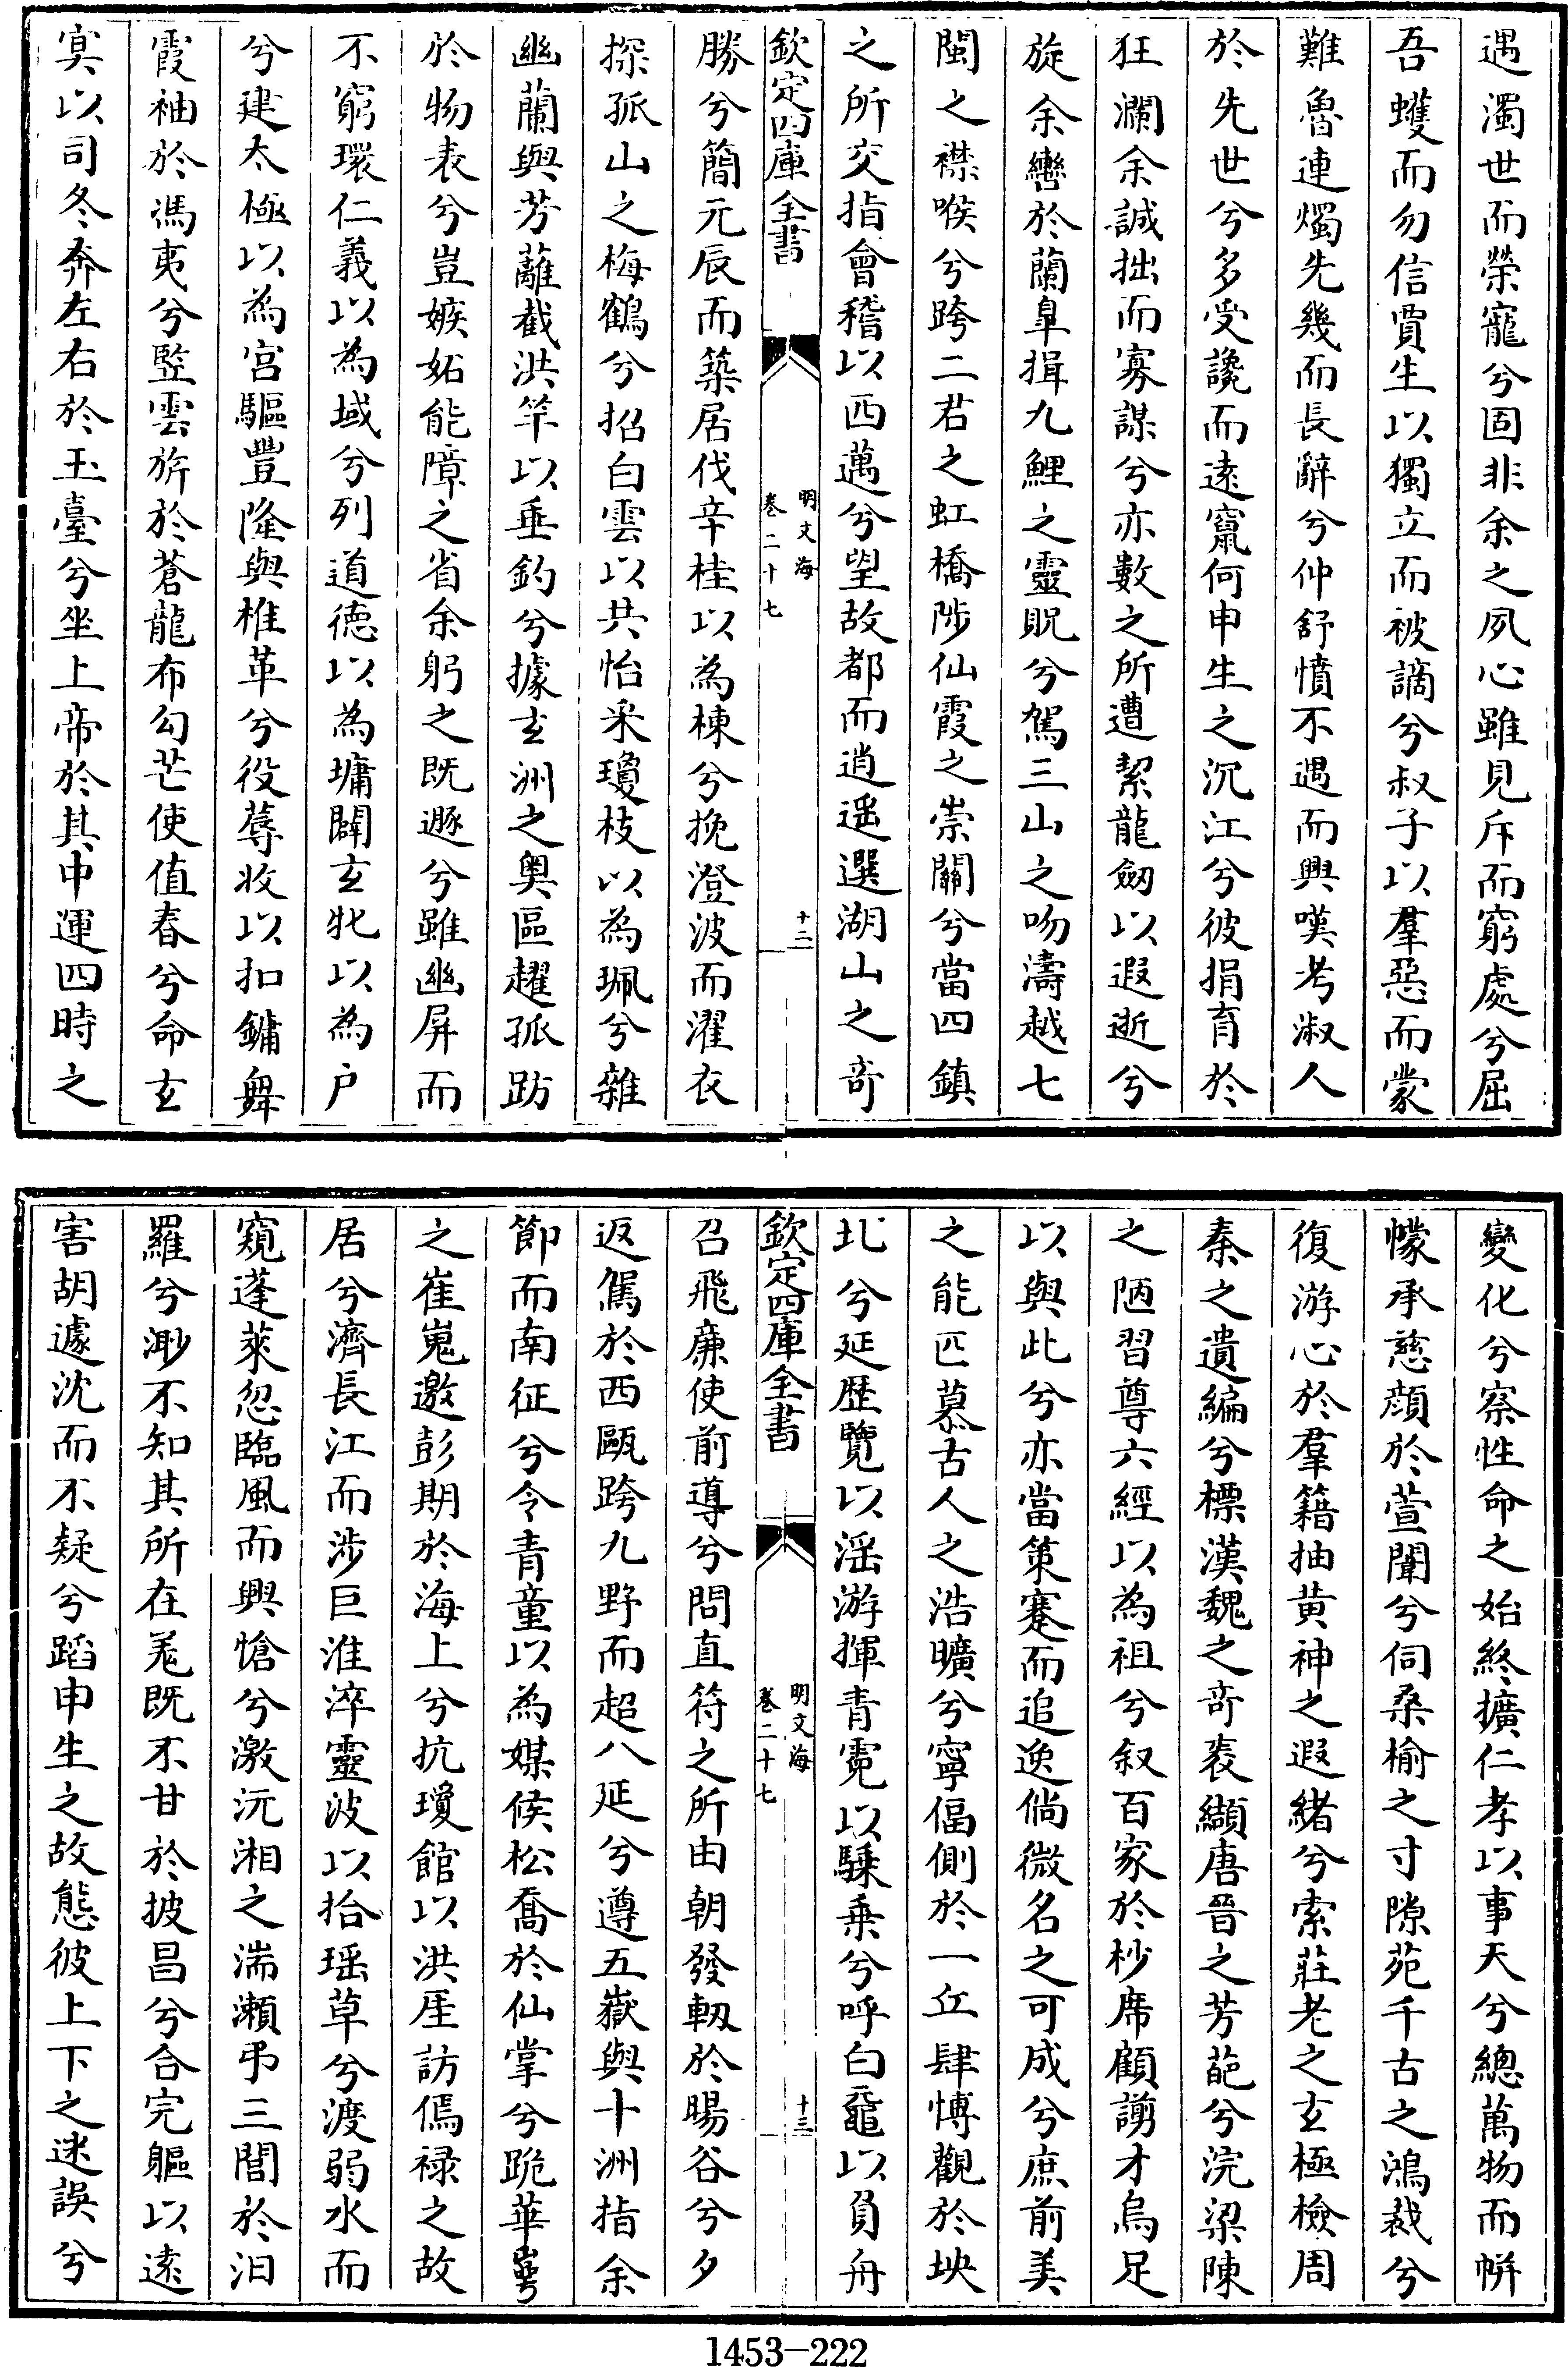 遇濁世而榮寵兮固非余之夙心雖見斥而窮處兮屈
吾蠖而勿信賈生以獨立而被謫兮叔子以羣惡而蒙
難魯連燭先幾而長辭兮仲舒憤不遇而興嘆考淑人
於先世兮多受讒而逺竄何申生之沉江兮彼捐育於
狂瀾余誠拙而寡謀兮亦數之所遭絜龍劒以遐逝兮
旋余轡於蘭臯揖九鯉之靈貺兮駕三山之吻濤越七
閩之襟喉兮跨二君之虹橋陟仙霞之崇關兮當四鎮
之所交指會稽以西邁兮望故都而逍遥選湖山之竒
欽定四庫全書
明文海
卷二十七
十二
勝兮簡元辰而築居伐辛桂以為棟兮挽澄波而濯衣
探孤山之梅鶴兮招白雲以共怡采瓊枝以為珮兮雜
幽蘭與芳蘺截洪竿以垂釣兮據玄洲之奥區趯孤跡
於物表兮豈嫉妬能障之省余躬之既遯兮雖幽屏而
不窮環仁義以為域兮列道徳以為墉闢玄牝以為户
兮建太極以為宫驅豐隆與椎革兮役蓐收以扣鏞舞
霞袖於馮夷兮監雲旂於蒼龍布勾芒使值春兮命玄
㝠以司冬奔左右於玉臺兮坐上帝於其中運四時之
變化兮察性命之始終擴仁孝以事天兮總萬物而帡
幪承慈顔於萱闈兮伺桑榆之寸隙苑千古之鴻裁兮
復游心於羣籍抽黄神之遐緒兮索莊老之玄極檢周
秦之遺編兮標漢魏之竒袠纈唐晉之芳葩兮浣梁陳
之陋習尊六經以為祖兮叙百家於杪席顧謭才烏足
以與此兮亦當策蹇而追逸倘微名之可成兮庶前美
之能匹慕古人之浩曠兮寧偪側於一丘肆慱觀於坱
圠兮延歴覽以滛游揮青霓以驂乗兮呼白鼉以負舟
欽定四庫全書
明文海
卷二十七
十三
召飛亷使前導兮問直符之所由朝發軔於暘谷兮夕
返駕於西甌跨九野而超八延兮遵五嶽與十洲指余
節而南征兮令青童以為媒候松喬於仙掌兮跪華蕚
之崔嵬邀彭期於海上兮抗瓊館以洪厓訪僞禄之故
居兮濟長江而涉巨淮淬靈波以拾瑶草兮渡弱水而
窺蓬萊忽臨風而興愴兮激沅湘之湍瀬弔三閭於汨
羅兮渺不知其所在羌既不甘於披昌兮合完軀以逺
害胡遽沈而不疑兮蹈申生之故態彼上下之迷誤兮
1453—222